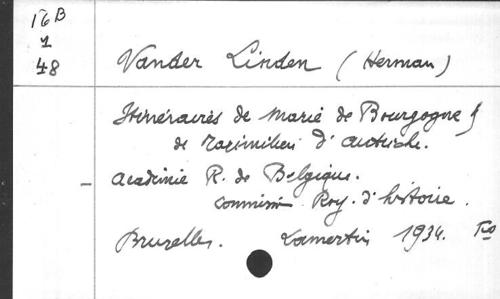 I6B
1
48
Vander Linden (Herman)
Itinéraires de Marie de Bourgogne &
de Maximilien d'Autriche.
— Académie R. de Belgique.
Commission Roy. d'histoire.
Bruxelles. Lamertin 1934.